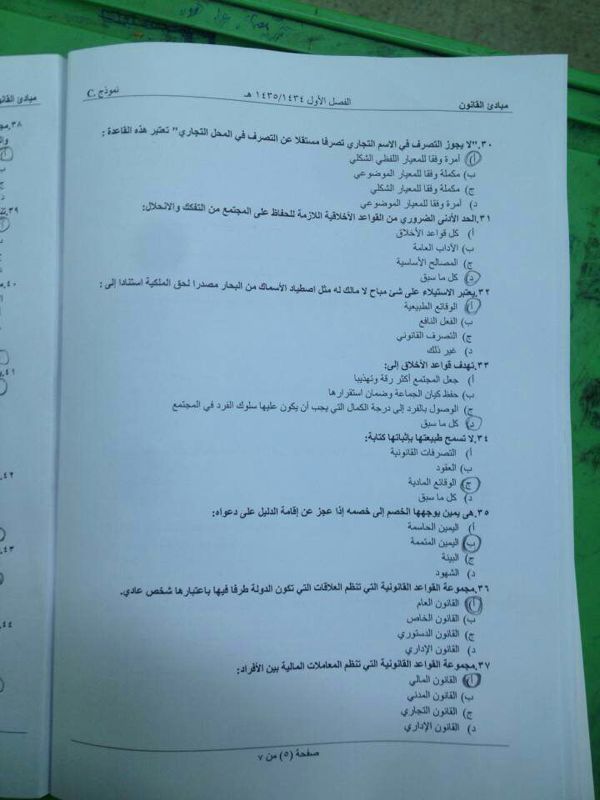 مبادئ القانون
الفصل الأول ١٤٣٥/١٤٣٤ هـ
نموذج C.
٣٠."لا يجوز التصرف في الاسم التجاري تصرفا مستقلا عن التصرف في المحل التجاري" تعتبر هذه القاعدة :
أ) أمرة وفقا للمعيار اللفظي الشكلي
ب) مكملة وفقا للمعيار الموضوعي
ج) مكملة وفقا للمعيار الشكلي
د) أمرة وفقا للمعيار الموضوعي
٣١.الحد الأدنى الضروري من القواعد الأخلاقية اللازمة للحفاظ على المجتمع من التفكك والانحلال:
أ) كل قواعد الأخلاق
ب) الآداب العامة
ج) المصالح الأساسية
د) كل ما سبق
٣٢.يعتبر الاستيلاء على شئ مباح لا مالك له مثل اصطياد الأسماك من البحار مصدرا لحق الملكية استنادا إلى :
أ) الوقائع الطبيعية
ب) الفعل النافع
ج) التصرف القانوني
د) غير ذلك
٣٣.تهدف قواعد الأخلاق إلى:
أ) جعل المجتمع أكثر رقة وتهذيبا
ب) حفظ كيان الجماعة وضمان استقرارها
ج) الوصول بالفرد إلى درجة الكمال التي يجب أن يكون عليها سلوك الفرد في المجتمع
د) كل ما سبق
٣٤.لا تسمح طبيعتها بإثباتها كتابة:
أ) التصرفات القانونية
ب) العقود
ج) الوقائع المادية
د) كل ما سبق
٣٥.هى يمين يوجهها الخصم إلى خصمه إذا عجز عن إقامة الدليل على دعواه:
أ) اليمين الحاسمة
ب) اليمين المتممة
ج) البينة
د) الشهود
٣٦.مجموعة القواعد القانونية التي تنظم العلاقات التي تكون الدولة طرفا فيها باعتبارها شخص عادي.
أ) القانون العام
ب) القانون الخاص
ج) القانون الدستوري
د) القانون الإداري
٣٧.مجموعة القواعد القانونية التي تنظم المعاملات المالية بين الأفراد:
أ) القانون المالي
ب) القانون المدني
ج) القانون التجاري
د) القانون الإداري
صفحة (٥) من ٧
مبادئ القانون
٣٨.
٣٩.
٤٠.
٤١.
٤٢.
٤٣.
٤٤.